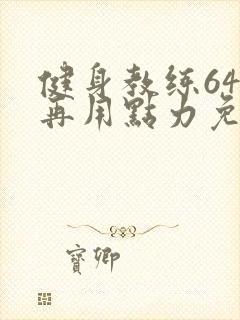 健身教练64
再用點力免
寶卿